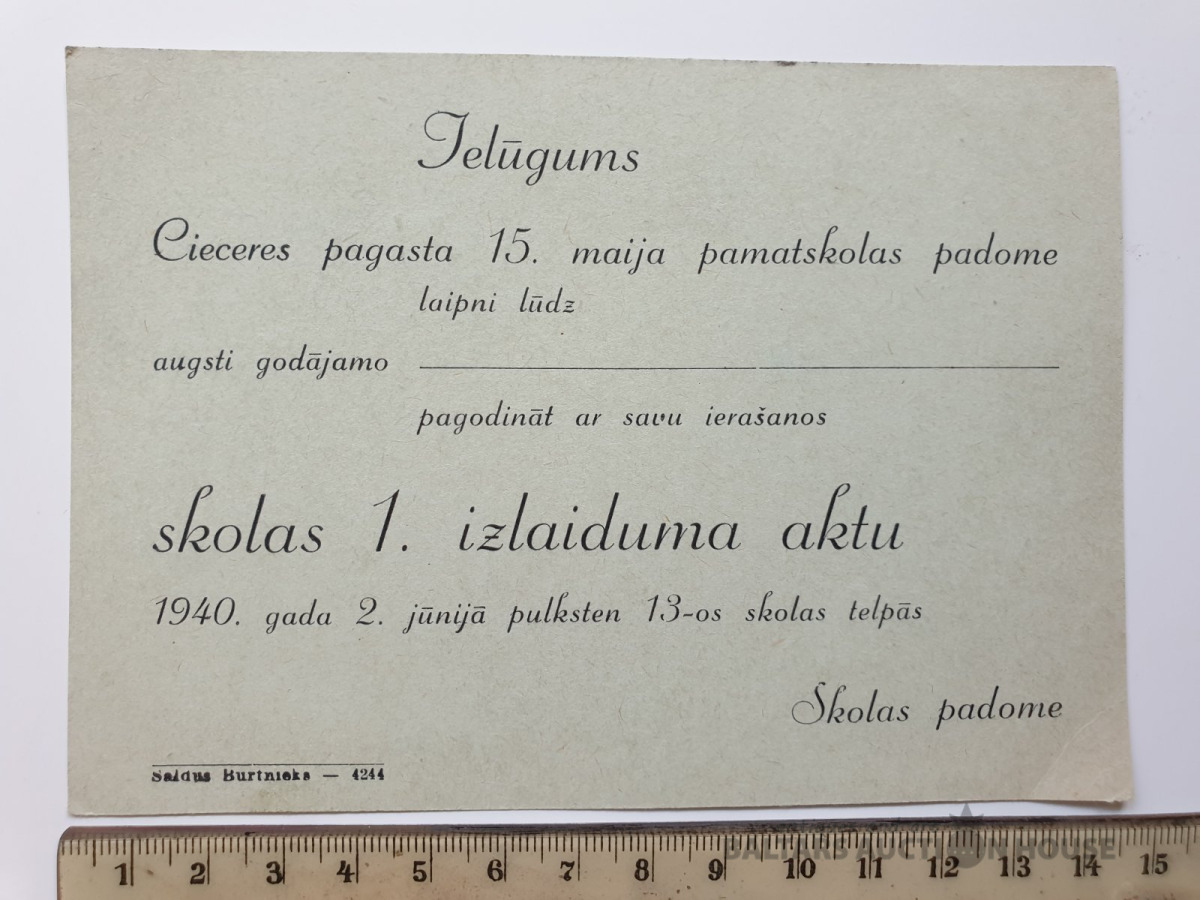 Ielūgums
Cieceres pagasta 15. maija pamatskolas padome
laipni lūdz
augsti godājamo
pagodināt ar savu ierašanos
skolas 1. izlaiduma aktu
1940. gada 2. jūnijā pulksten 13-os skolas telpās
Skolas padome
Saldus Burtnieks — 4244
BALTARS AUCTION HOUSE
1 2 3 4 5 6 7 8 9 10 11 12 13 14 15